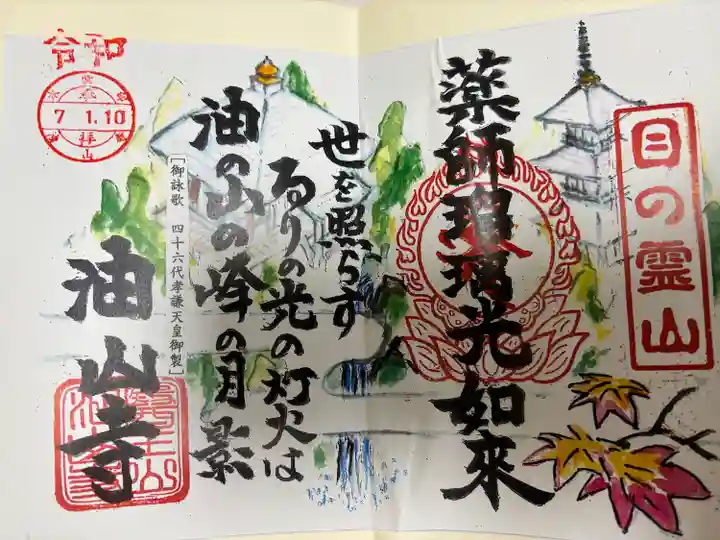 目の霊山
薬師瑠璃光如來
世を照らす
るりの光の灯火は
油の山の峰の月影
[御詠歌 四十六代孝謙天皇御製]
油山寺
令和
7 1.10
参拝